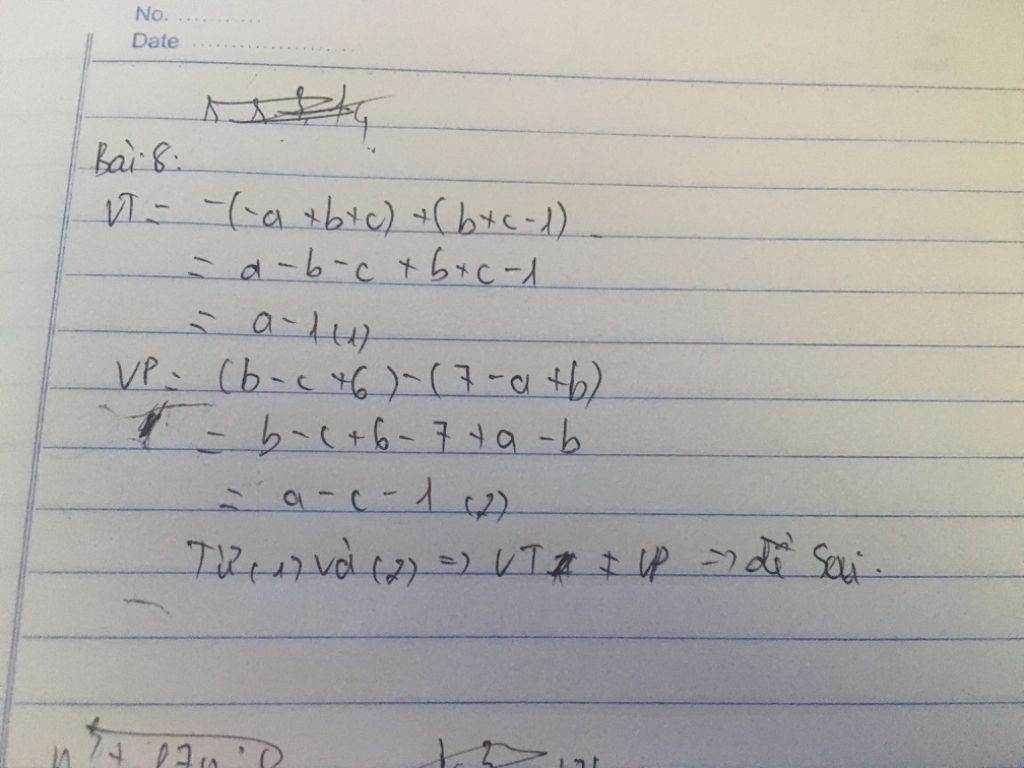 No. ............
Date ........................
Bài 8:
VT = -(-a +b+c) +(b+c-1)
= a-b-c +b+c-1
= a-1 (1)
VP = (b-c+6)-(7-a+b)
= b-c+6-7+a-b
= a-c-1 (2)
Từ (1) và (2) => VT ≠ VP => đề sai.